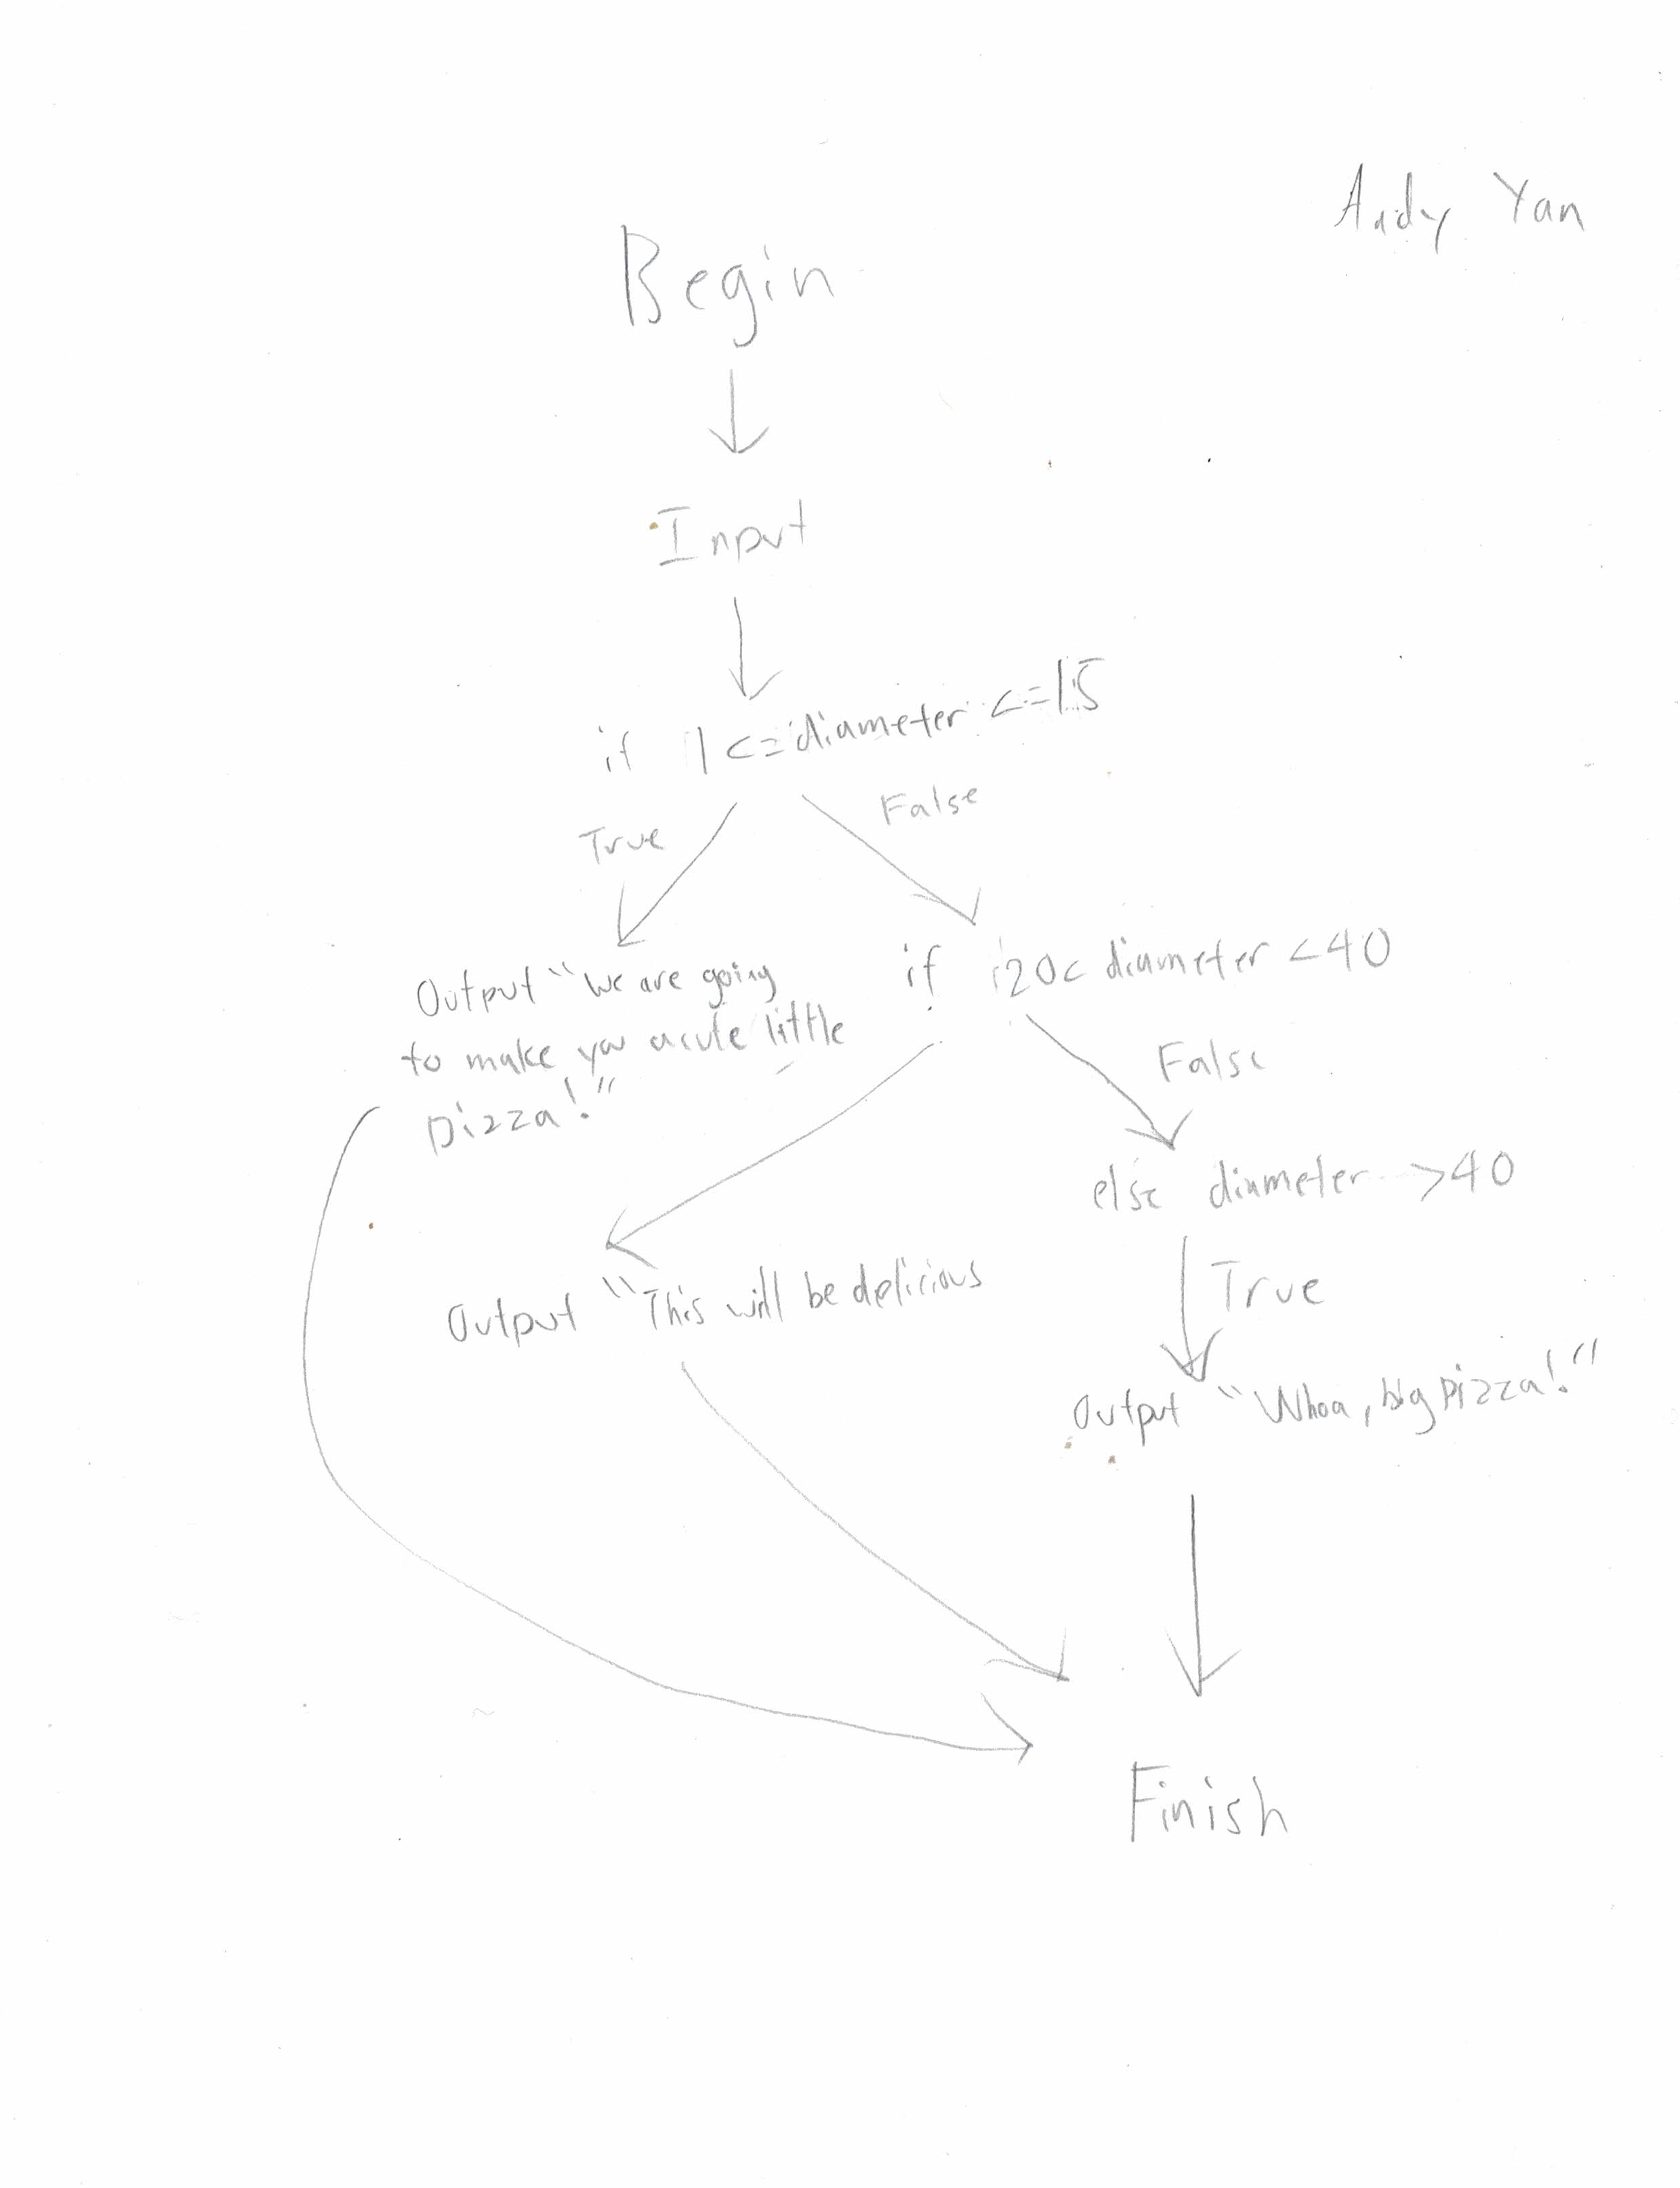 Andy Yan
Begin
Input
if 1<=diameter<=15
True
False
Output "We are going
to make you a cute little
pizza!"
if 20< diameter <40
False
Output "This will be delicious
else diameter >40
True
Output "Whoa, big pizza!"
Finish